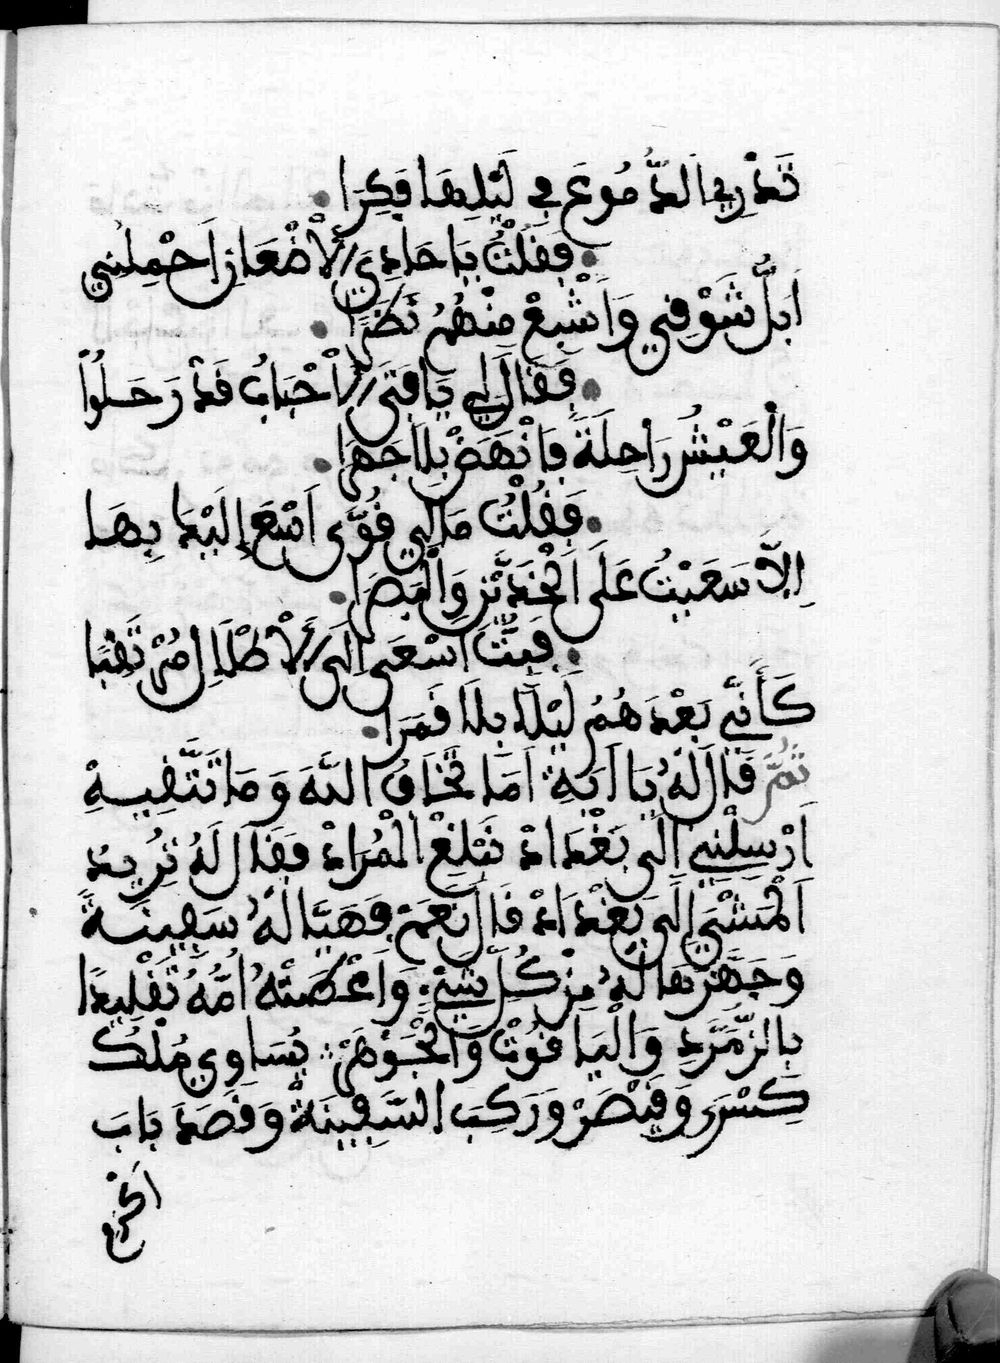 تَذْرِي الدُّمُوعَ فِي لَيْلِهَا فِكِرَا
فَقُلْتُ يَا حَادِي الْأَضْعَانِ احْمِلْنِي
أَبُلُّ شَوْقِي وَأَشْبَعْ مِنْهُمُ نَضَرًا
فَقَالَ لِي يَا فَتَى الْأَحْبَابُ قَدْ رَحَلُوا
وَالْعَيْشُ رَاحِلَةً فَانْهَضْ بِلَا جَهَرَا
فَقُلْتُ مَا لِي قُوًى أَسْعَ إِلَيْهَا بِهَا
إِلَّا سَعَيْتُ عَلَى الْخَدَّيْنِ وَالْبَصَرَا
فَبِتُّ أَسْعَى إِلَى الْأَطْلَالِ مُرْتَقِبًا
كَأَنَّنِي بَعْدَهُمُ لَيْلًا بِلَا قَمَرَا
ثُمَّ قَالَ لَهُ يَا أَبَةِ أَمَا تَخَافُ اللَّهَ وَمَا تَتَّقِيهْ
أَرْسِلْنِي إِلَى بَغْدَادْ نَبْلَغِ الْمُرَادْ فَقَالَ لَهُ تُرِيدُ
الْمَشْيَ إِلَى بَغْدَادْ قَالَ نَعَمْ فَهَيَّأَ لَهُ سَفِينَةً
وَجَهَّزَهَا لَهُ مِنْ كُلِّ شَيْءٍ وَأَعْطَتْهُ أُمُّهُ تَقْلِيدًا
بِالزُّمَرُّدِ وَالْيَاقُوتْ وَالْجَوْهَرْ يُسَاوِي مُلْكَ
كِسْرَى وَقَيْصَرْ وَرَكِبَ السَّفِينَةَ وَقَصَدَ بَابَ